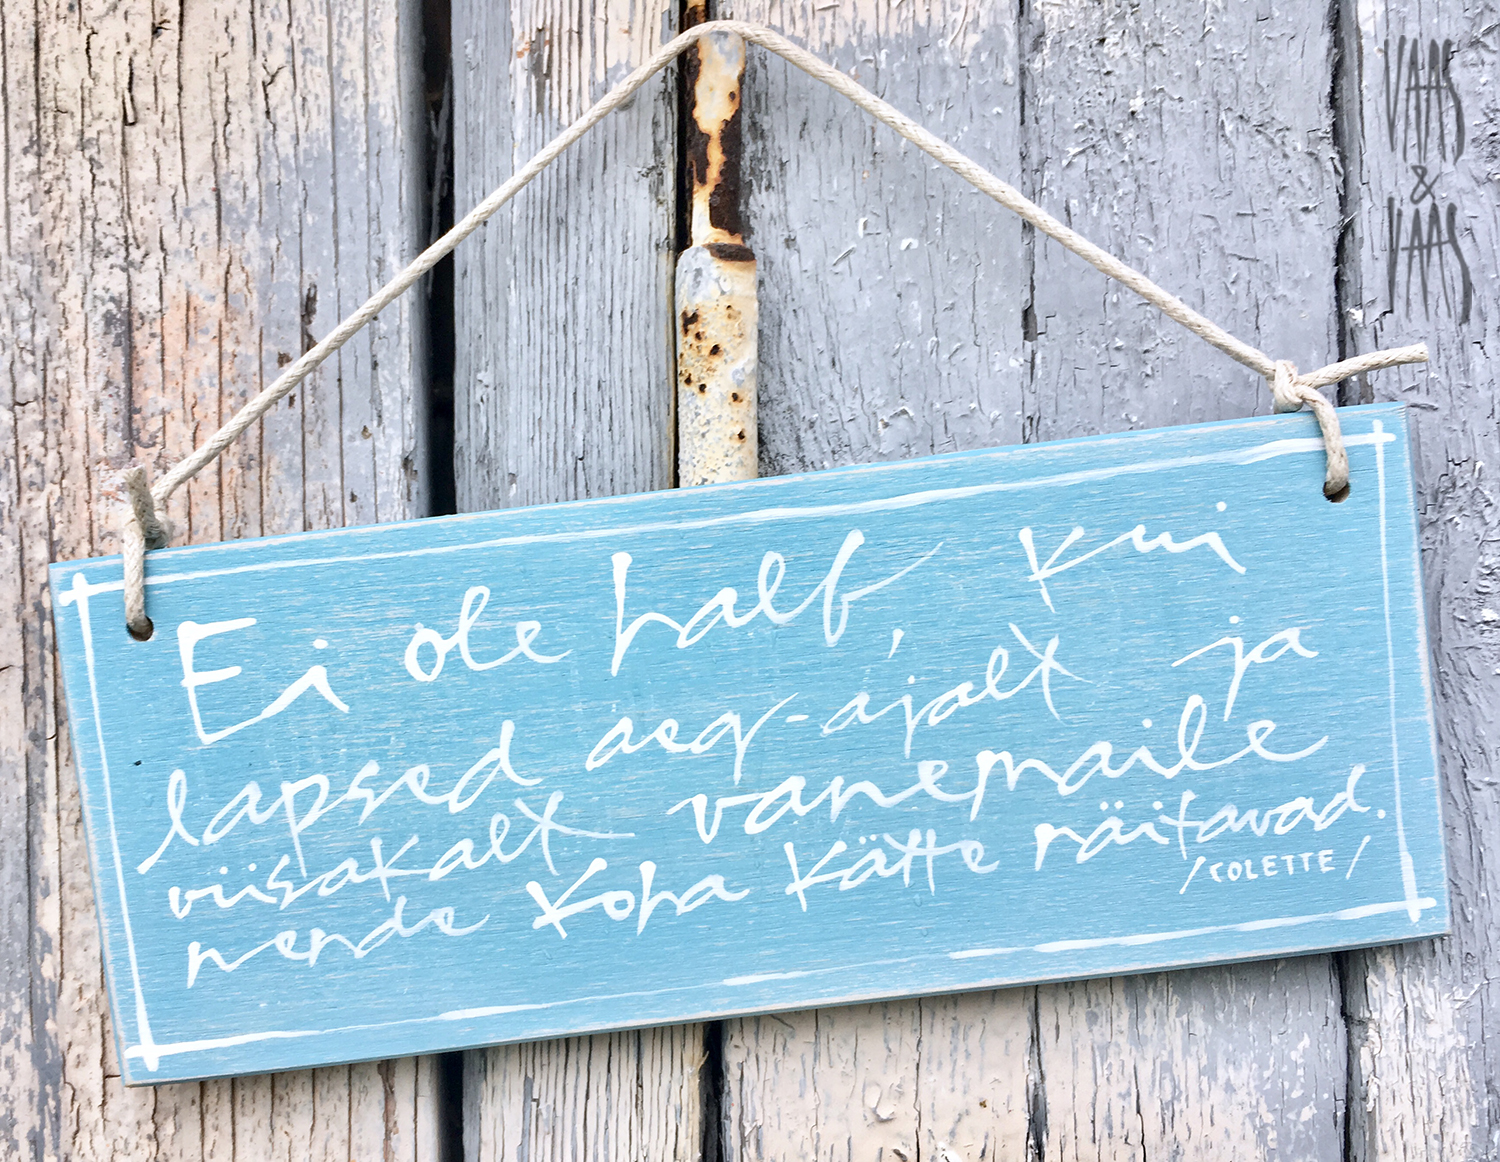 Ei ole halb, kui
lapsed aeg-ajalt ja
viisakalt vanemaile
nende koha kätte näitavad.
/COLETTE/
VAAS
&
VAAS